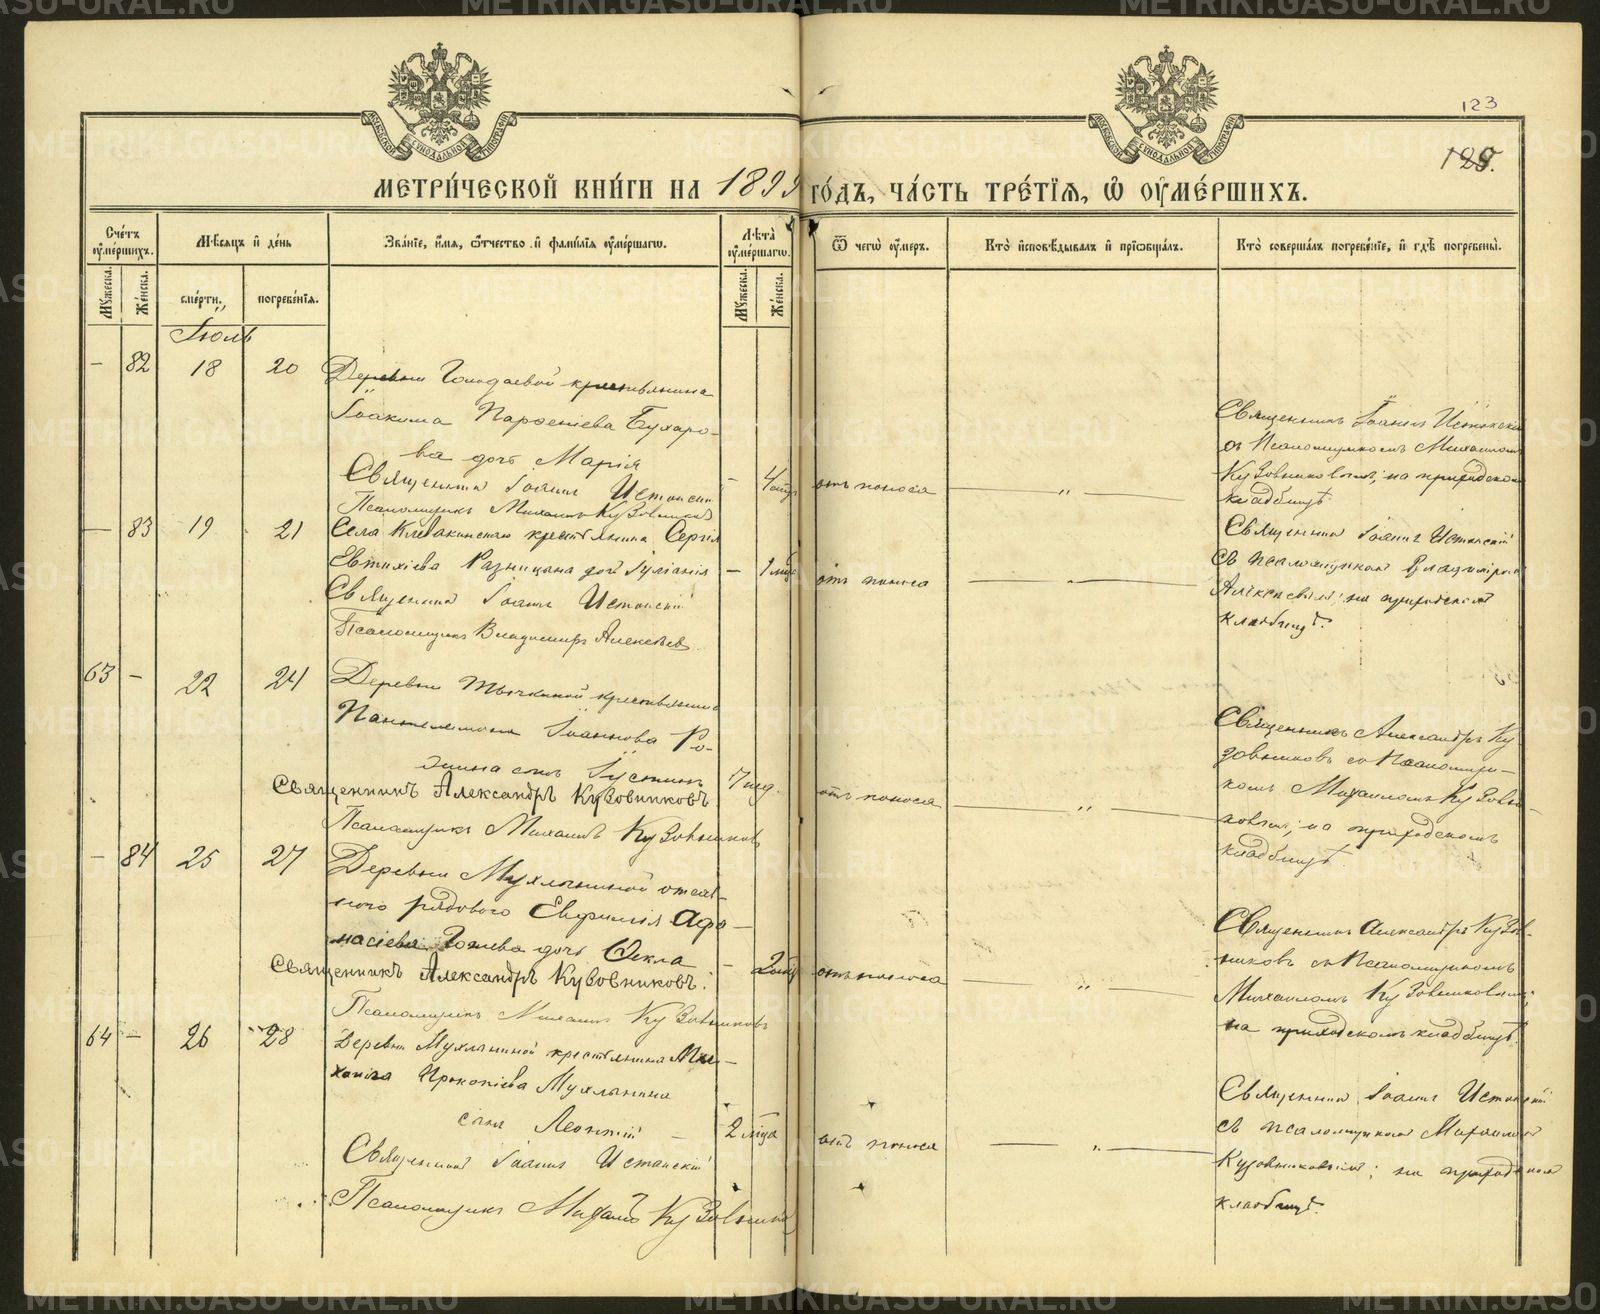 123
125.
МЕТРИ́ЧЕСКОЙ КНИ́ГИ НА 1899 ГО́ДЪ, ЧА́СТЬ ТРЕ́ТІѦ, Ѡ ОУМЕ́РШИХЪ.
Сче́тъ оумершихъ.
Мѣсяцъ и день
Зва́нїе, и́мѧ, о́тчество и фами́лїѧ оуме́ршагѡ.
Лѣта̀ оуме́ршагѡ.
Ѿ чегѡ̀ оу́меръ.
Кто̀ исповѣ́дывалъ и прїѡбща́лъ.
Кто̀ соверша́лъ погребе́нїе, и гдѣ̀ погребены̀.
Мужеска.
Женска.
сме́рти.
погребе́нїѧ.
Мужеска.
Женска.
Іюль
— 82 18 20
Деревни крестьянина
Іоакима Парѳеніева Бухаро-
ва дочь Марія
Священникъ Іоаннъ Истокскій
Псаломщикъ Михаилъ Кузовниковъ
— 4
отъ поноса
— „ —
Священникъ Іоаннъ Истокскій
съ Псаломщикомъ Михаиломъ
Кузовниковымъ; на приходскомъ
кладбищѣ
— 83 19 21
Села Клевакинскаго крестьянина Сергія
Евтихіева дочь Іуліанія
Священникъ Іоаннъ Истокскій
Псаломщикъ Владимиръ Алексѣев
— 1
отъ поноса
— „ —
Священникъ Іоаннъ Истокскій
съ псаломщикомъ Владиміромъ
на приходскомъ
кладбищѣ.
63 — 22 24
Деревни крестьянина
Пантелеимона Іоаннова
сынъ Іустинъ
Священникъ Александръ Кузовниковъ
Псаломщикъ Михаилъ Кузовниковъ
7 нед.
отъ поноса
— „ —
Священникъ Александръ Ку-
зовниковъ съ Псаломщи-
комъ Михаиломъ Кузовни-
ковымъ; на приходскомъ
кладбищѣ.
— 84 25 27
Деревни Мухлыниной отстав-
ного рядового Евфимія Афа-
насіева дочь Ѳекла
Священникъ Александръ Кузовниковъ.
Псаломщикъ Михаилъ Кузовниковъ
— 2
отъ поноса
— „ —
Священникъ Александръ Кузов-
никовъ съ Псаломщикомъ
Михаиломъ Кузовниковымъ;
на приходскомъ кладбищѣ.
64 — 26 28
Деревни Мухлыниной крестьянина Ми-
хаила Прокопіева Мухлынина
сынъ Леонтій —
Священникъ Іоаннъ Истокскій
Псаломщикъ Михаилъ Кузовников
2 мѣсца
отъ поноса
— „ —
Священникъ Іоаннъ Истокскій
съ псаломщикомъ Михаиломъ
Кузовниковымъ; на приходскомъ
кладбищѣ.
METRIKI.GASO-URAL.RU